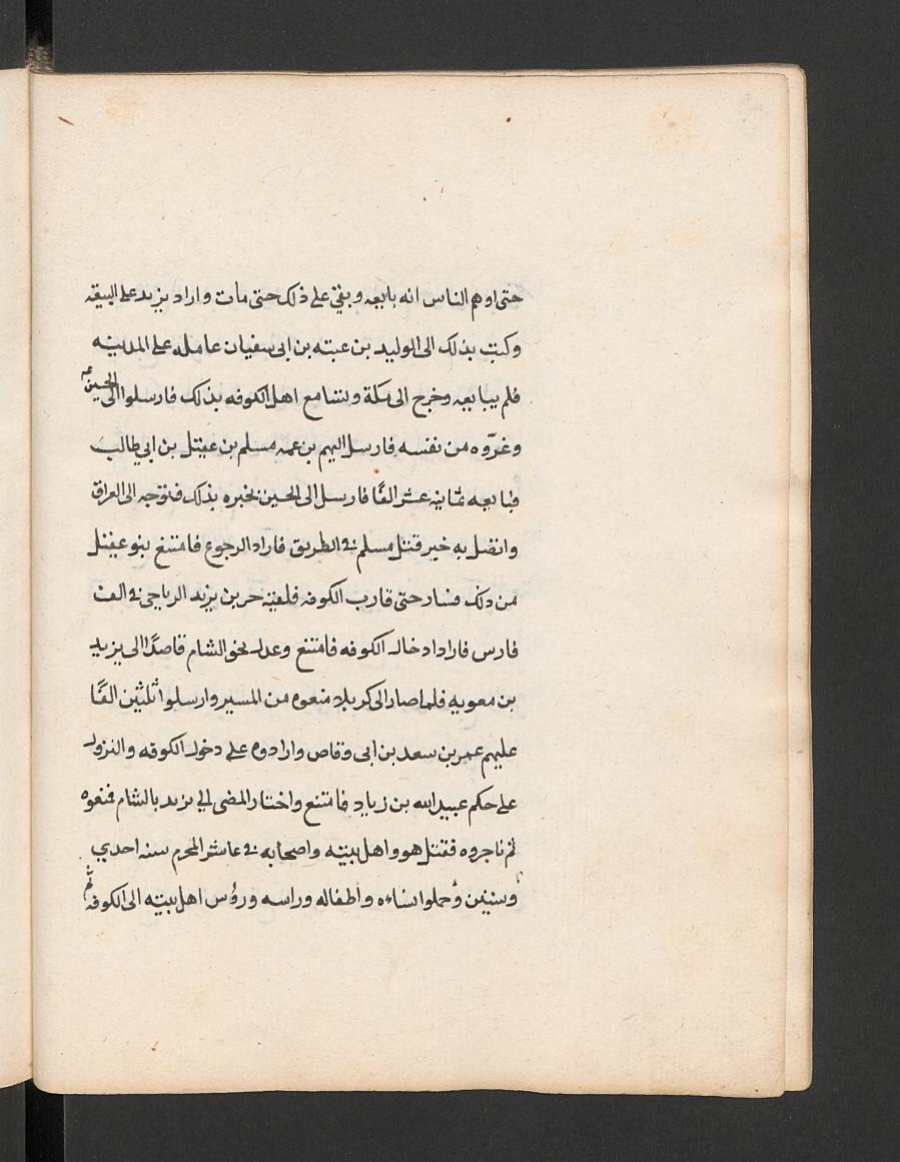 حتى اوهم الناس انه بايعه وبقي على ذلك حتى مات واراد يزيد على البيعه
وكتب بذلك الى الوليد بن عتبه بن ابى سفيان عامله على المدينه
فلم يبايعه وخرج الى مكة وتسامع اهل الكوفه بذلك فارسلوا الى الحسين عم
وغرّوه من نفسه فارسل اليهم بن عمه مسلم بن عقيل بن ابي طالب
فبايعه ثمانيه عشر الفًا فارسل الى الحسين يخبره بذلك فتوجه الى العراق
واتصل به خبر قتل مسلم في الطريق فاراد الرجوع فامتنع بنو عقيل
من ذلك فسار حتى قارب الكوفه فلقيه حر بن يزيد الرياحي في الف
فارس فاراد ادخاله الكوفه فامتنع وعدل نحو الشام قاصدًا الى يزيد
بن معويه فلما صار الى كربلا منعوه من المسير وارسلوا ثلثين الفًا
عليهم عمر بن سعد بن ابى وقاص وارادوه على دخول الكوفه والنزول
على حكم عبيد الله بن زياد فامتنع واختار المضى الي يزيد بالشام فمنعوه
ثم ناجزوه فقتل هو واهل بيته واصحابه في عاشر المحرم سنه احدي
وستين وحملوا نساءه واطفاله وراسه ورؤس اهل بيته الى الكوفه ثم